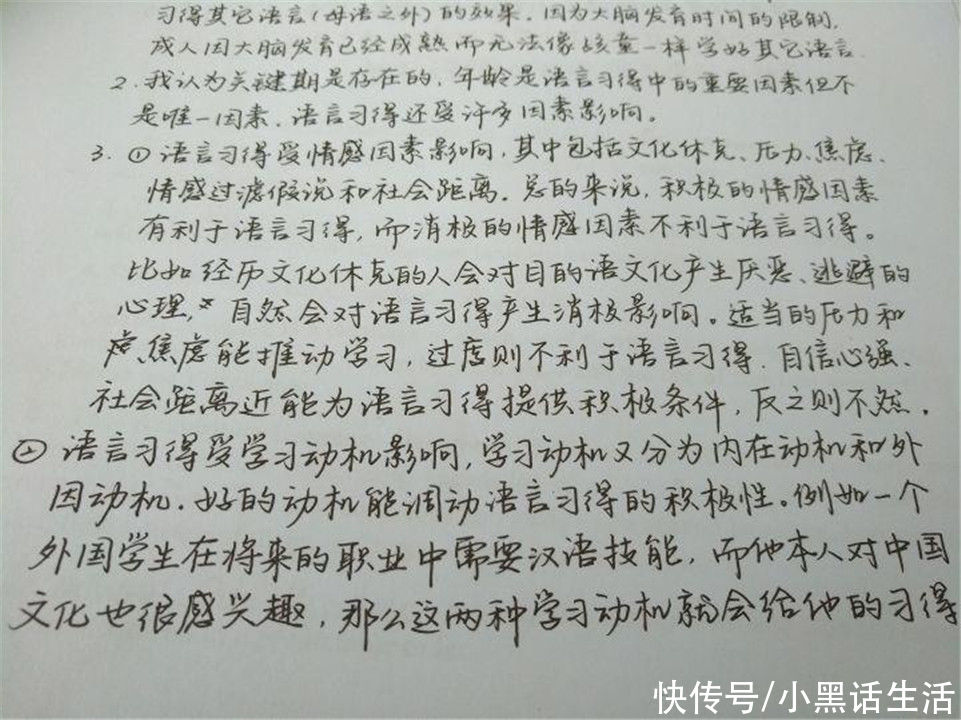 习得其它语言(母语之外)的效果。因为大脑发育时间的限制,
成人因大脑发育已经成熟而无法像孩童一样学好其它语言
2. 我认为关键期是存在的,年龄是语言习得中的重要因素但不
是唯一因素,语言习得还受许多因素影响。
3. ① 语言习得受情感因素影响,其中包括文化休克、压力、焦虑、
情感过滤假说和社会距离。总的来说,积极的情感因素
有利于语言习得,而消极的情感因素不利于语言习得。
比如经历文化休克的人会对目的语文化产生厌恶、逃避的
心理,自然会对语言习得产生消极影响。适当的压力和
焦虑能推动学习,过度则不利于语言习得。自信心强、
社会距离近能为语言习得提供积极条件,反之则不然。
② 语言习得受学习动机影响,学习动机又分为内在动机和外
因动机。好的动机能调动语言习得的积极性。例如一个
外国学生在将来的职业中需要汉语技能,而他本人对中国
文化也很感兴趣,那么这两种学习动机就会给他的习得
快传号/小黑话生活